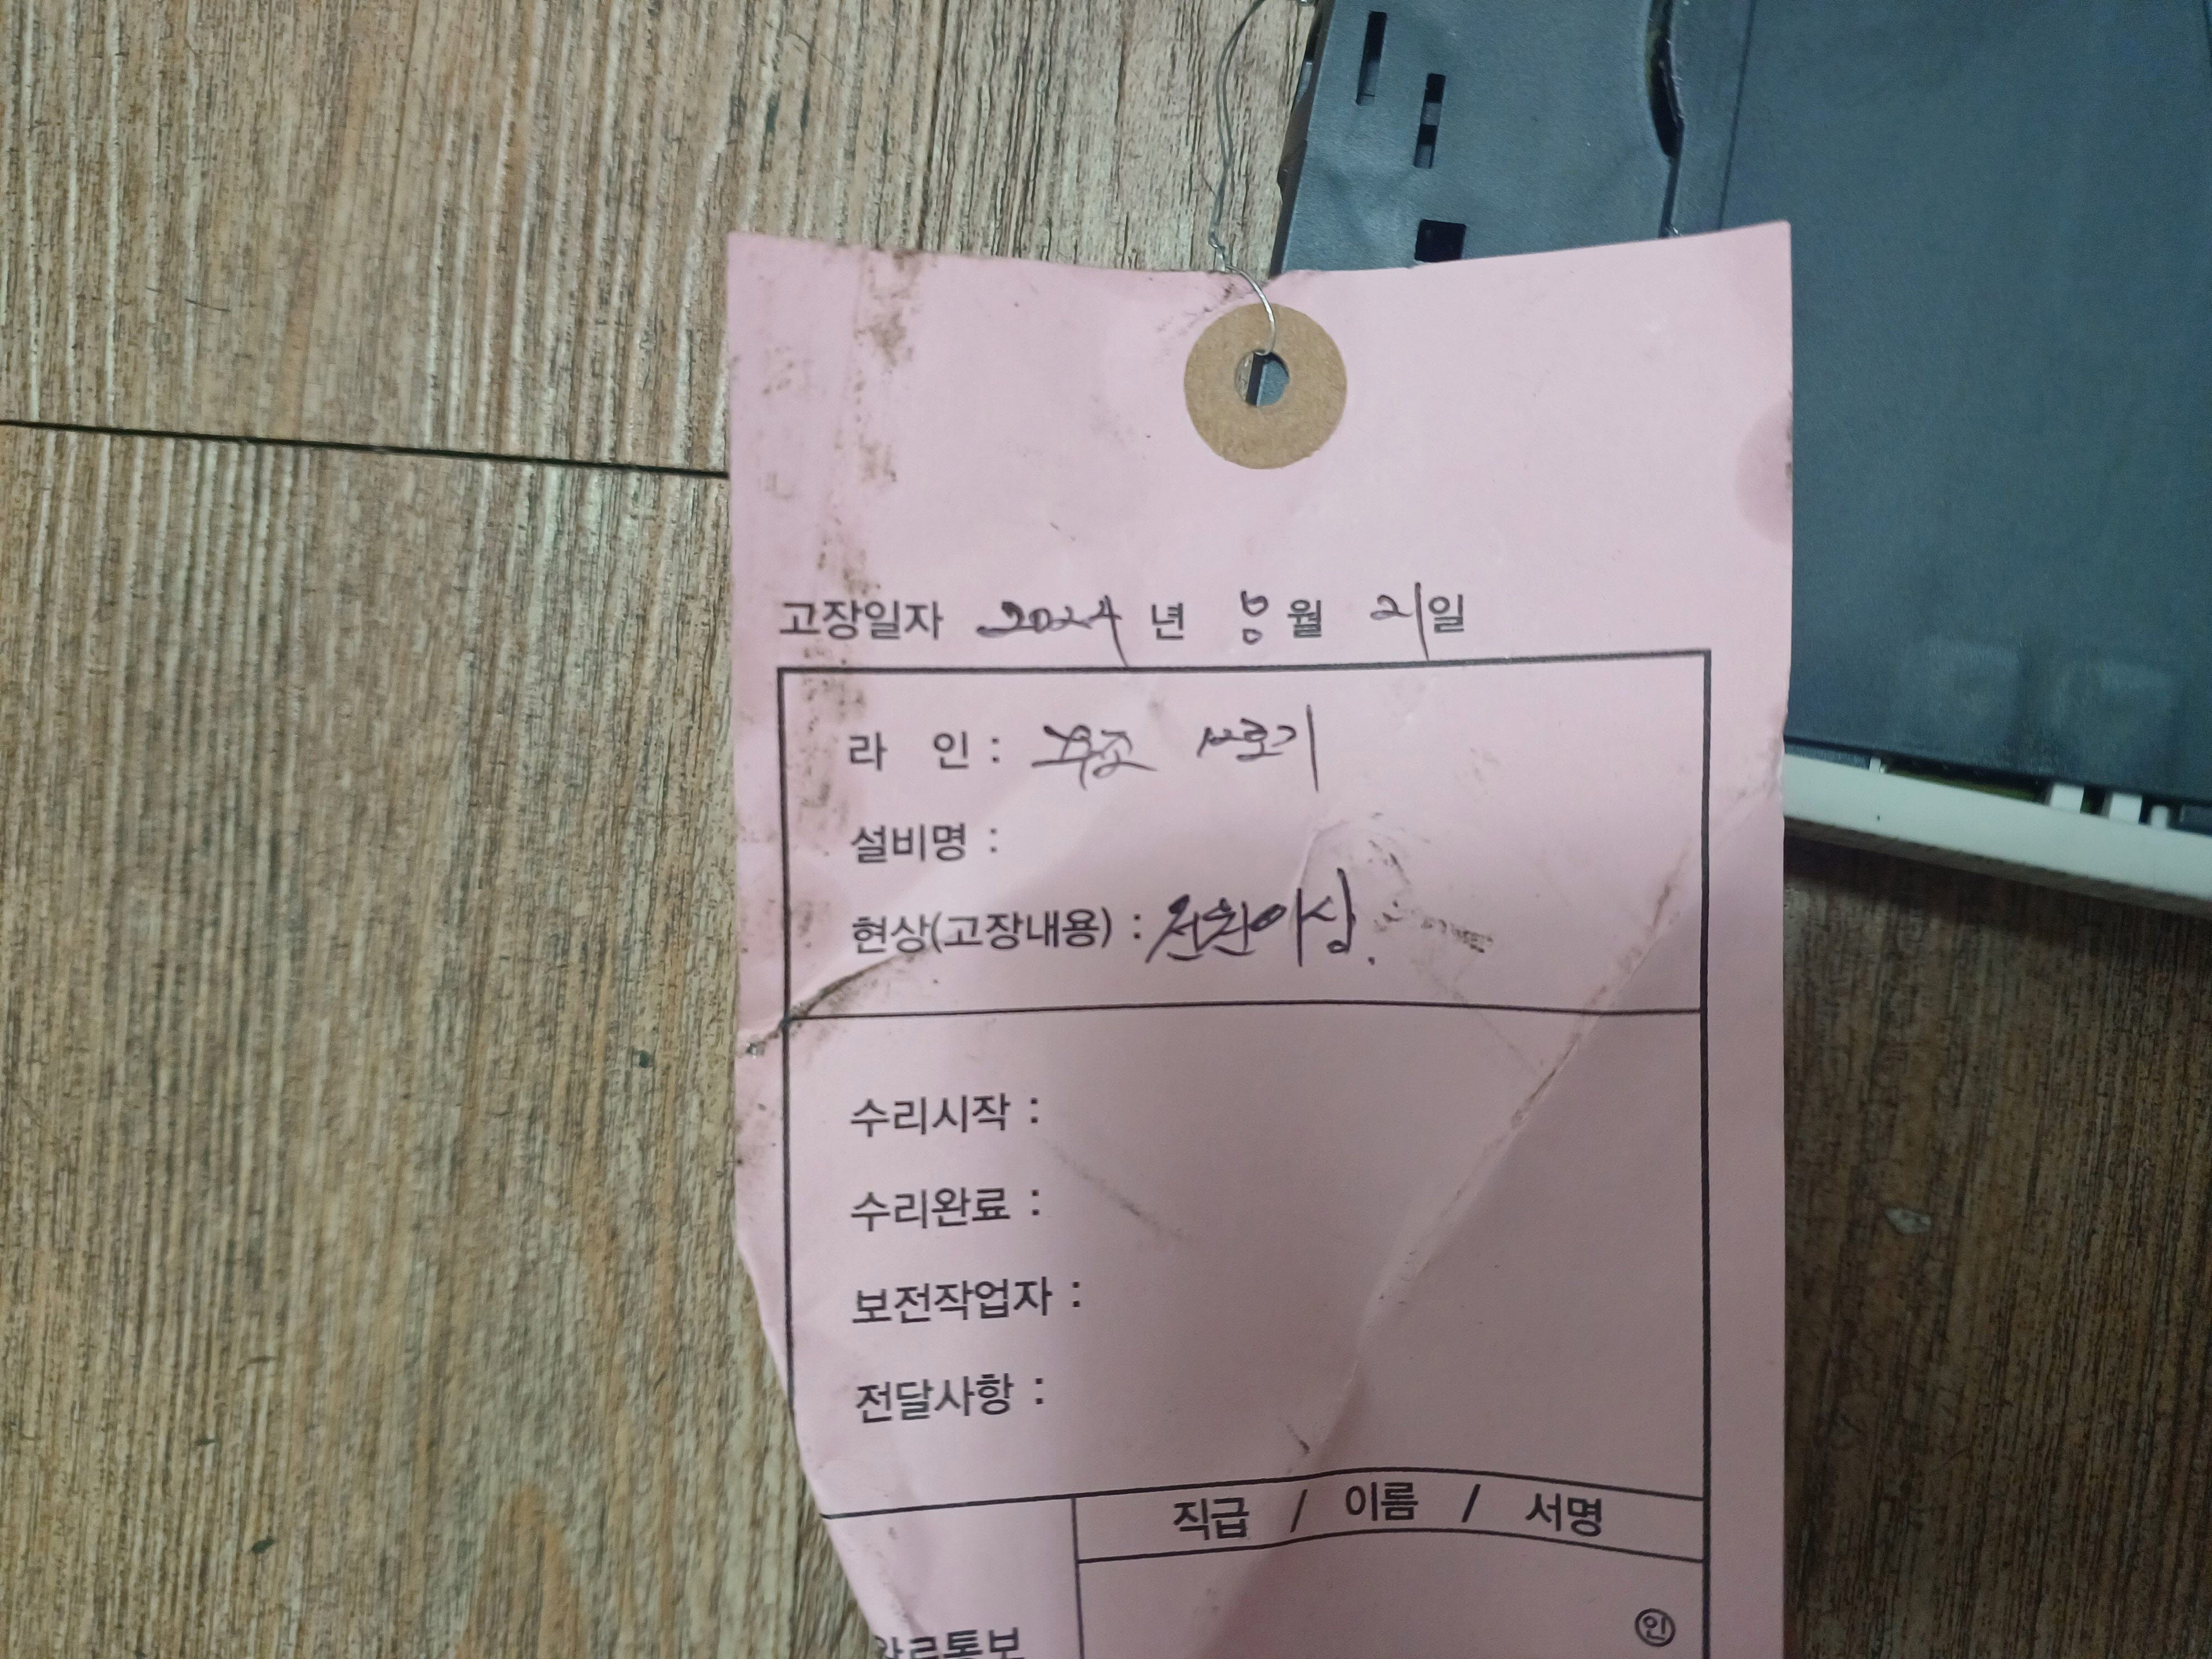 고장일자 2024 년 8 월 21 일
라 인 : 주조
설비명 :
현상(고장내용) : 전원이상.
수리시작 :
수리완료 :
보전작업자 :
전달사항 :
직급 / 이름 / 서명
인
완료통보